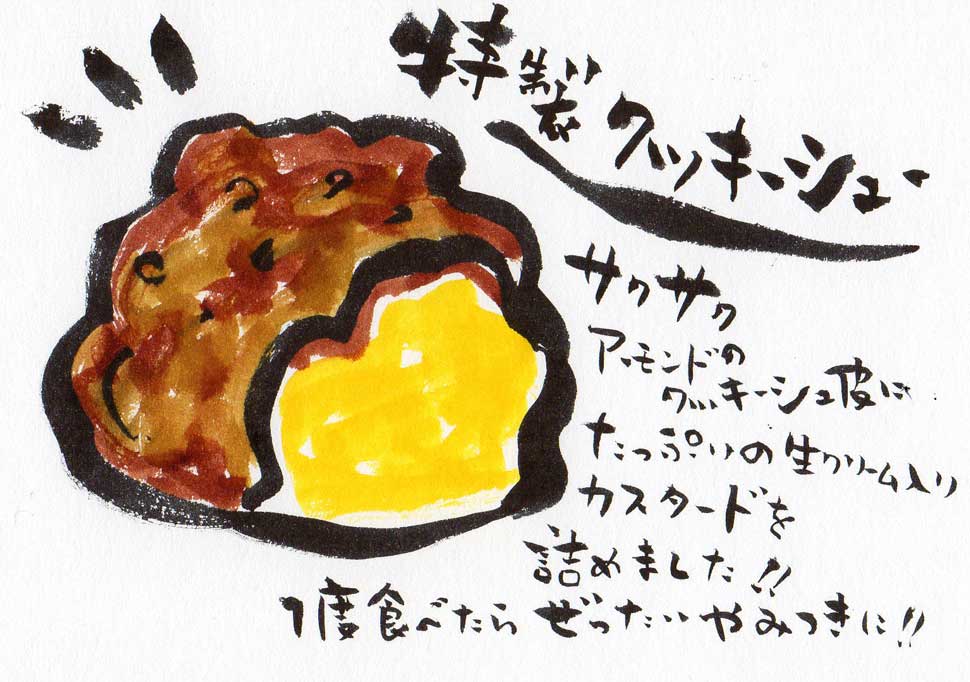 特製クッキーシュー
サクサク
アーモンドの
クッキーシュ皮に
たっぷりの生クリーム入り
カスタードを
詰めました!!
1度食べたらぜったいやみつきに!!